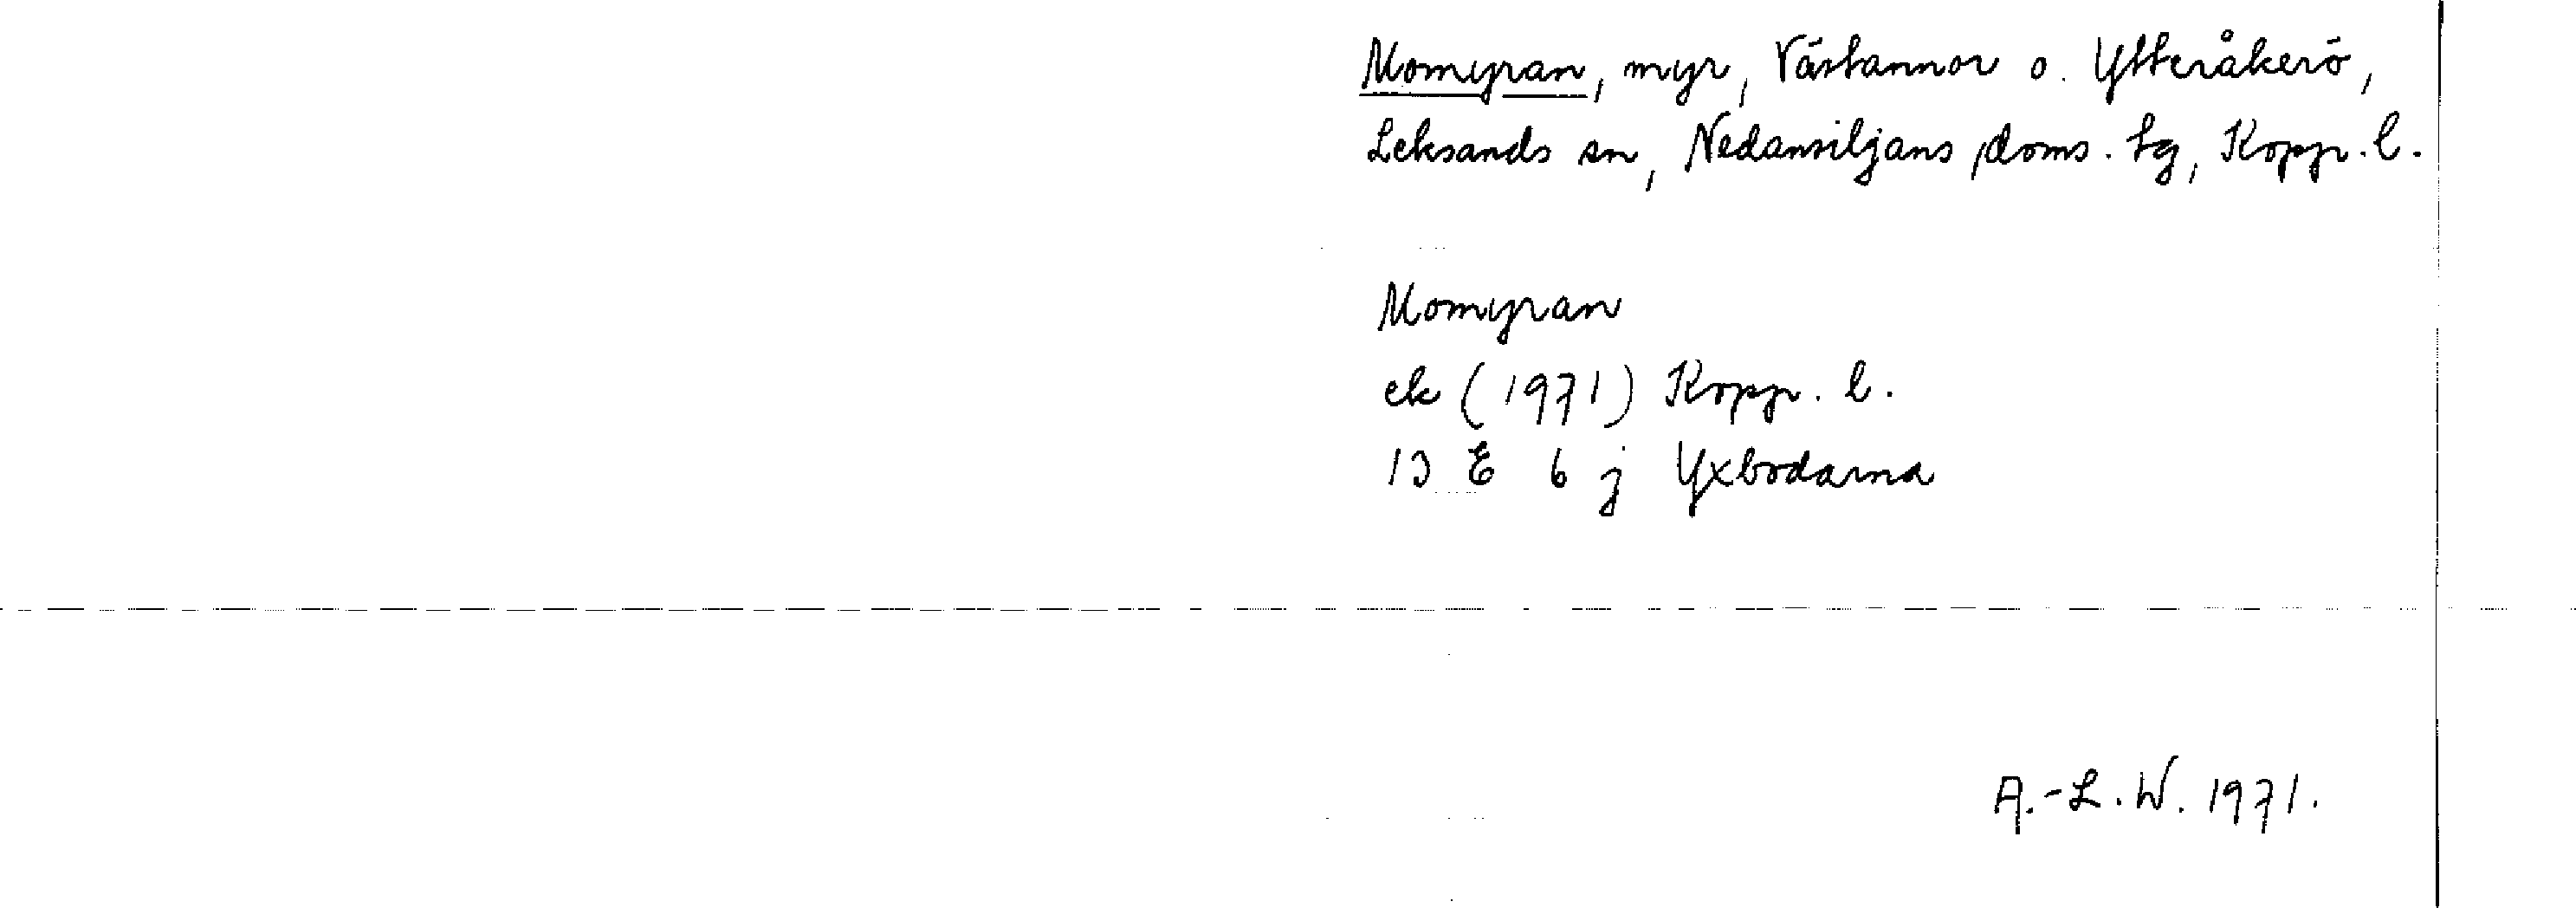 Momyran, myr, Västannor o. Ytteråkerö,
Leksands sn, Nedansiljans doms. tg, Kopp. l.
Momyran
ek (1971) Kopp. l.
13 E 6 j Yxbodarna
A.-L. W. 1971.